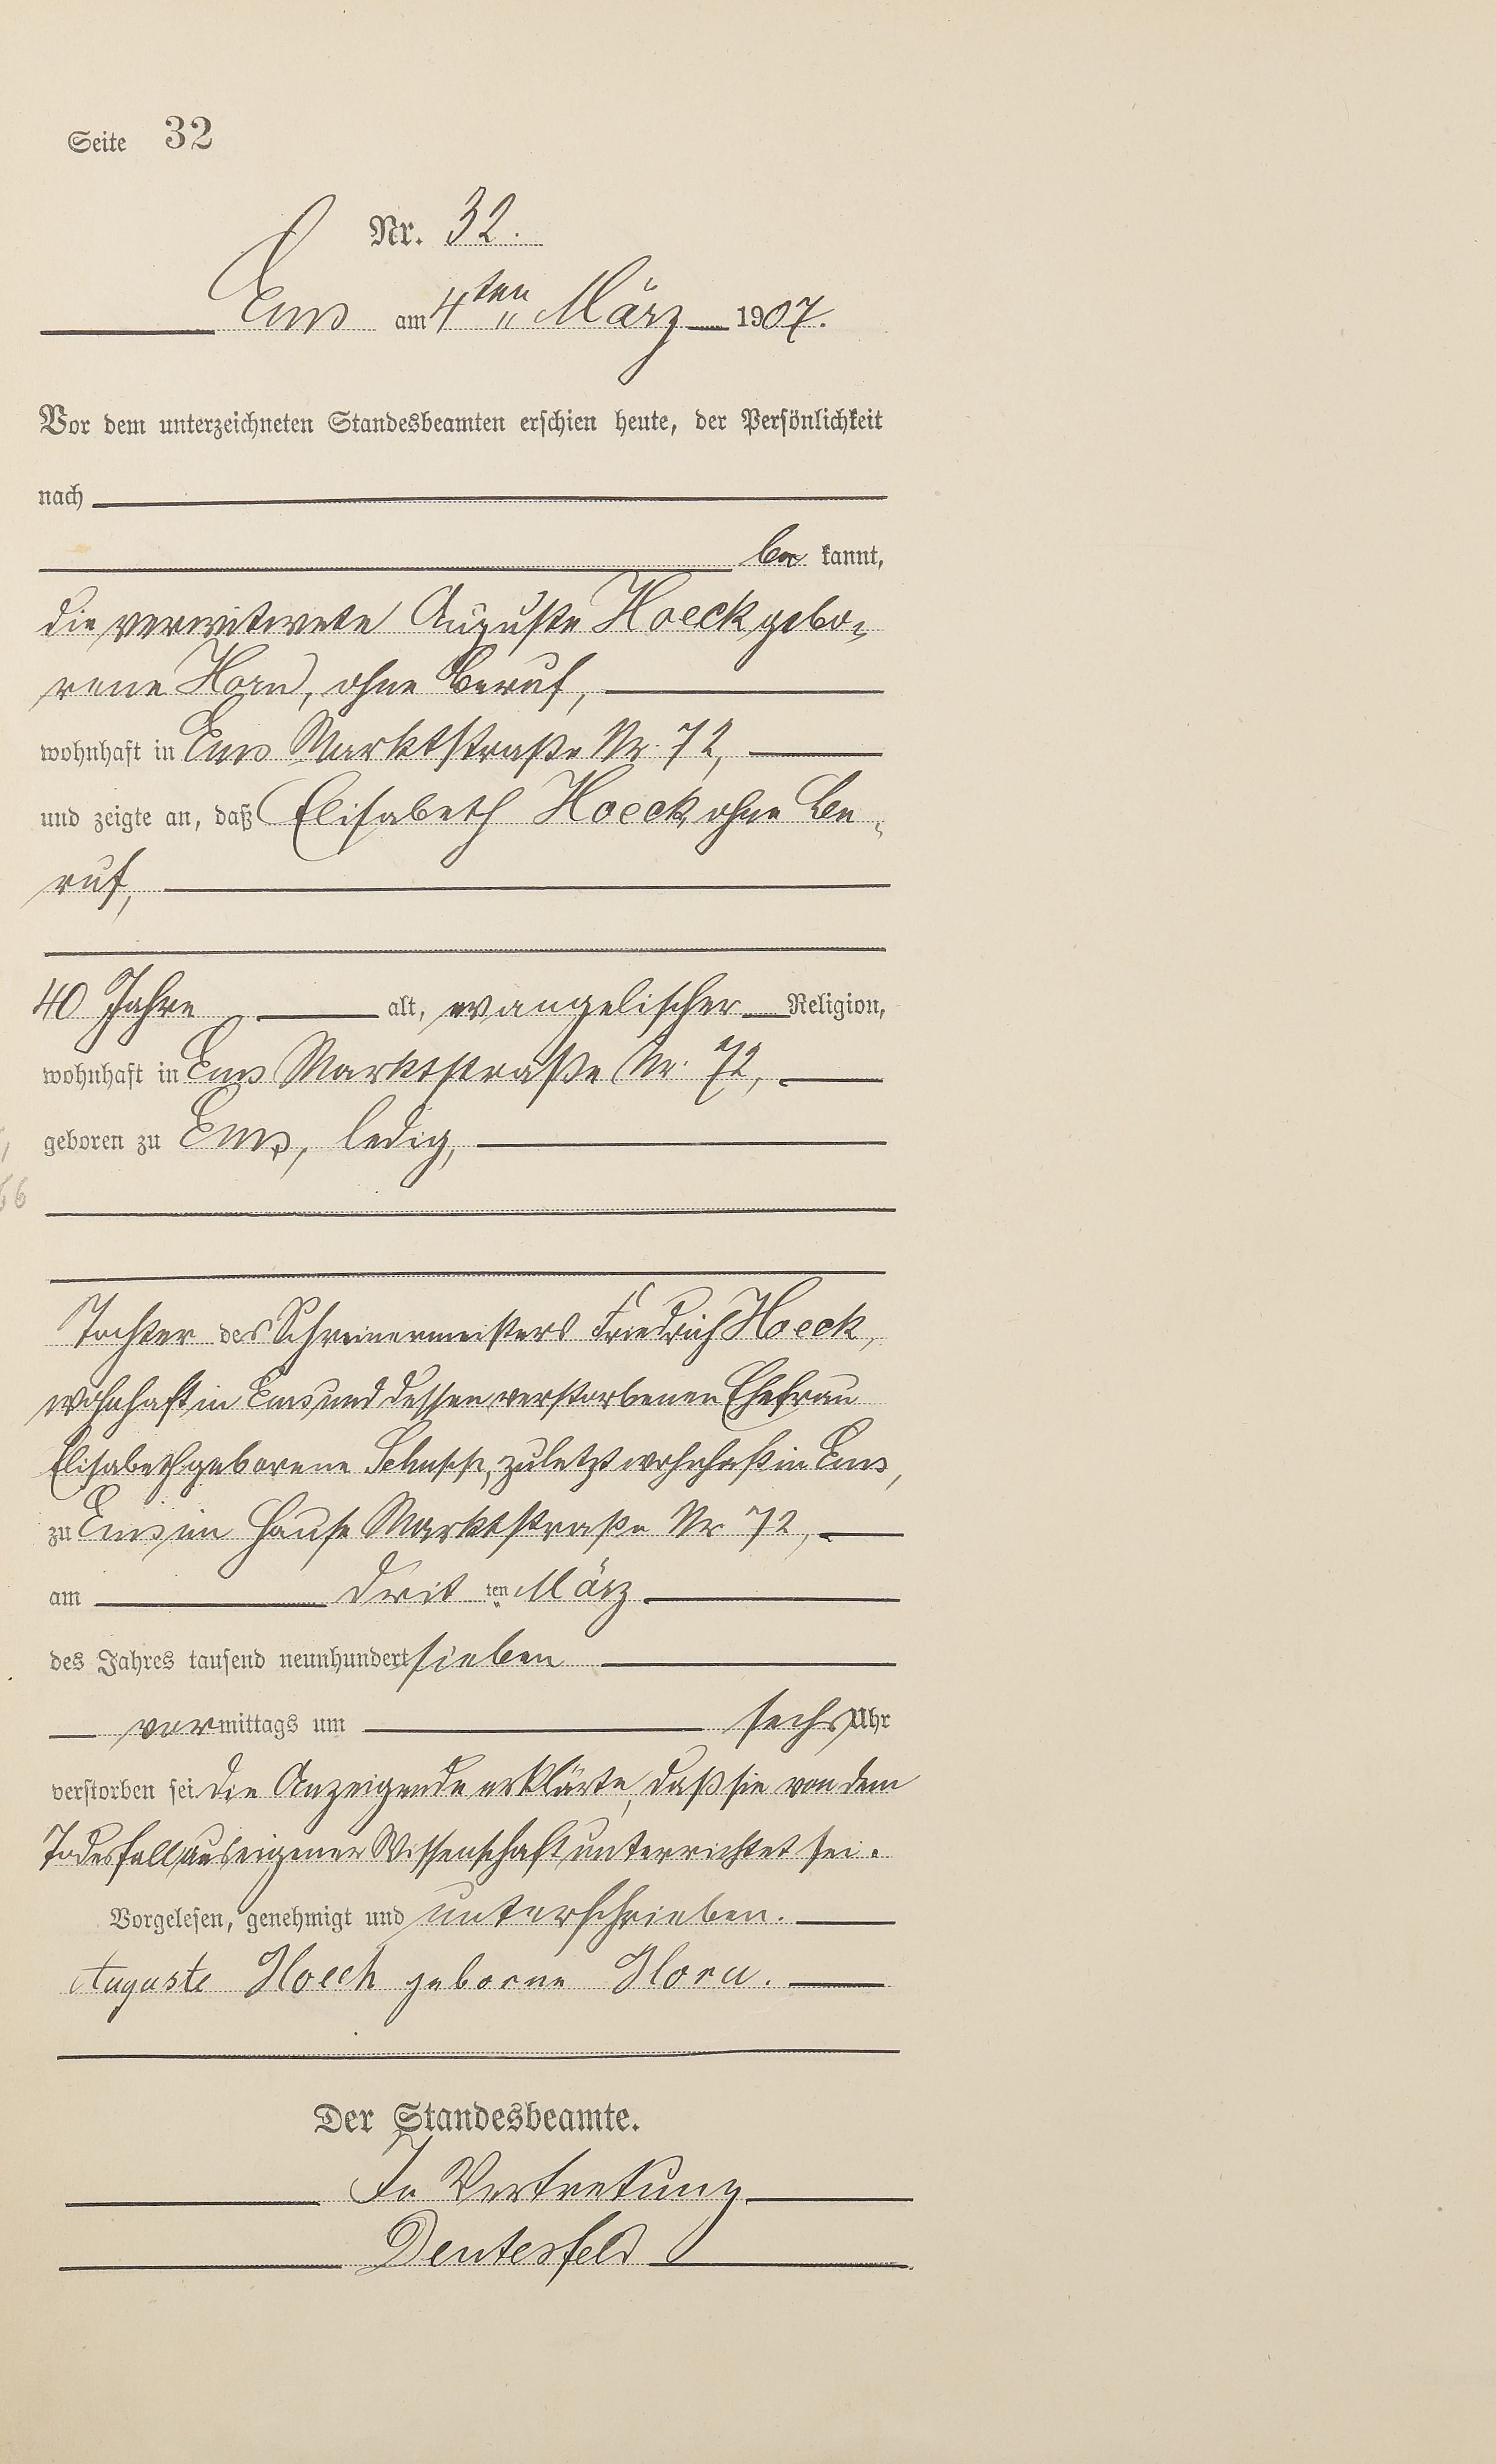 Seite 32
Nr. 32.
Ems am 4ten März 1907.
Vor dem unterzeichneten Standesbeamten erschien heute, der Persönlichkeit
nach
be kannt,
die verwitwete Auguste Hoeck gebo-
rene Horn, ohne Beruf,
wohnhaft in Ems Marktstraße Nr. 72,
und zeigte an, daß Elisabeth Hoeck, ohne Be-
ruf,
40 Jahre alt, evangelischer Religion,
wohnhaft in Ems Marktstraße Nr. 72,
geboren zu Ems, ledig,
Tochter des Schreinermeisters Friedrich Hoeck,
wohnhaft in Ems und dessen verstorbenen Ehefrau
Elisabeth geborene zuletzt wohnhaft in Ems,
zu Ems im Hause Marktstraße Nr 72,
am dritten März
des Jahres tausend neunhundert sieben
vormittags um sechs Uhr
verstorben sei. Die Anzeigende erklärte, daß sie von dem
Todesfall aus eigener Wissenschaft unterrichtet sei.
Vorgelesen, genehmigt und unterschrieben.
Auguste Hoeck geborne Horn.
Der Standesbeamte.
In Vertretung
Deutesfeld